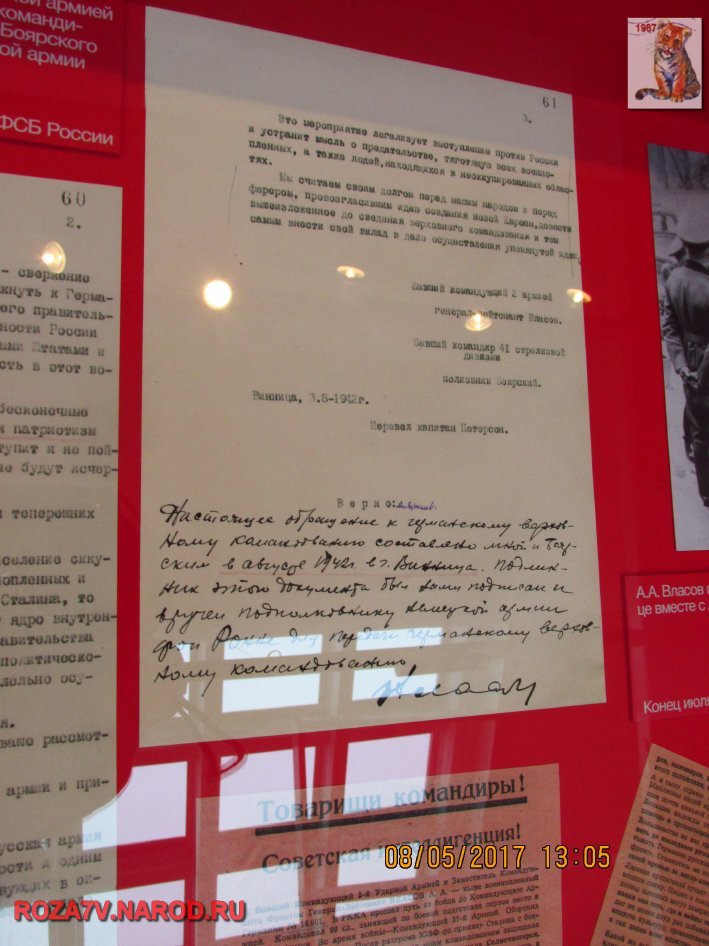 ной армией
команди-
Боярского
ой армии
ФСБ России
1987
60
2.
- свержение
кнуть к Герма-
его правитель-
ности России
ными Штатами и
сть в этот во-
бесконечные
и патриотизм
тупит и не пой-
не будут исчер-
и теперешних
аселение окку-
нопленных и
Сталина, то
ядро внутрен-
равительства
политическо-
дельно осу-
я.
ваше рассмот-
армии и при-
усская армия
ности и одним
вующих в ок-
61
3.
Это мероприятие легализует выступление против России
и устранит мысль о предательстве, тяготящую всех военно-
пленных, а также людей, находящихся в неоккупированных облас-
тях.
Мы считаем своим долгом перед нашим народом и перед
фюрером, провозгласившим идею создания новой Европы, довести
вышеизложенное до сведения верховного командования и тем
самым внести свой вклад в дело осуществления упомянутой идеи.
Бывший командующий 2 армией
генерал-лейтенант Власов.
Бывший командир 41 стрелковой
дивизии
полковник Боярский.
Винница, 3.8-1942г.
Перевел капитан Петерсон.
Верно:
Настоящее обращение к германскому верхов-
ному командованию составлено мной и Бояр-
ским в августе 1942г. в г. Винница. Подлин-
ник этого документа был нами подписан и
вручен подполковнику немецкой армии
фон Ронне для передачи германскому верхов-
ному командованию
Власов
А.А. Власов
це вместе с
Конец июля
Товарищи командиры!
Советская интеллигенция!
08/05/2017 13:05
ROZA7V.NAROD.RU